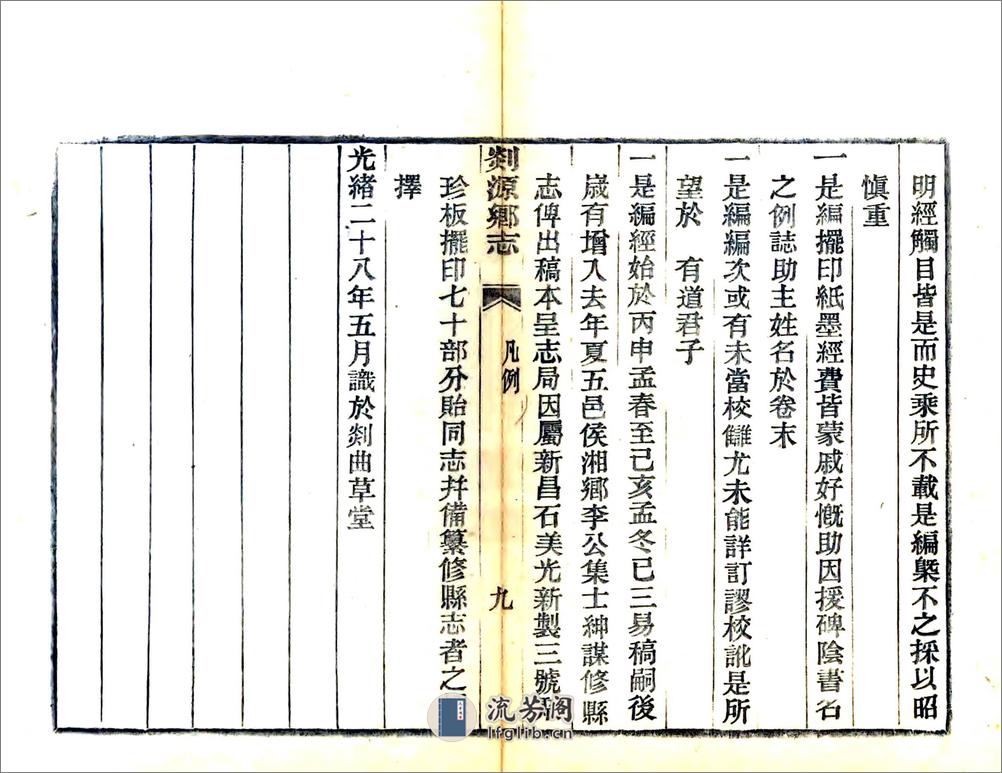 明經觸目皆是而史乘所不載是編槩不之採以昭
愼重
一是編擺印紙墨經費皆蒙戚好慨助因援碑陰書名
之例誌助主姓名於卷末
一是編編次或有未當校讎尤未能詳訂謬校訛是所
望於　有道君子
一是編經始於丙申孟春至己亥孟冬已三易稿嗣後
歲有增入去年夏五邑侯湘鄉李公集士紳謀修縣
志俾出稿本呈志局因屬新昌石美光新製三號
剡源鄉志
凡例
九
珍板擺印七十部分貽同志幷備纂修縣志者之
擇
光緒二十八年五月識於剡曲草堂
流芳閣
lfglib.cn